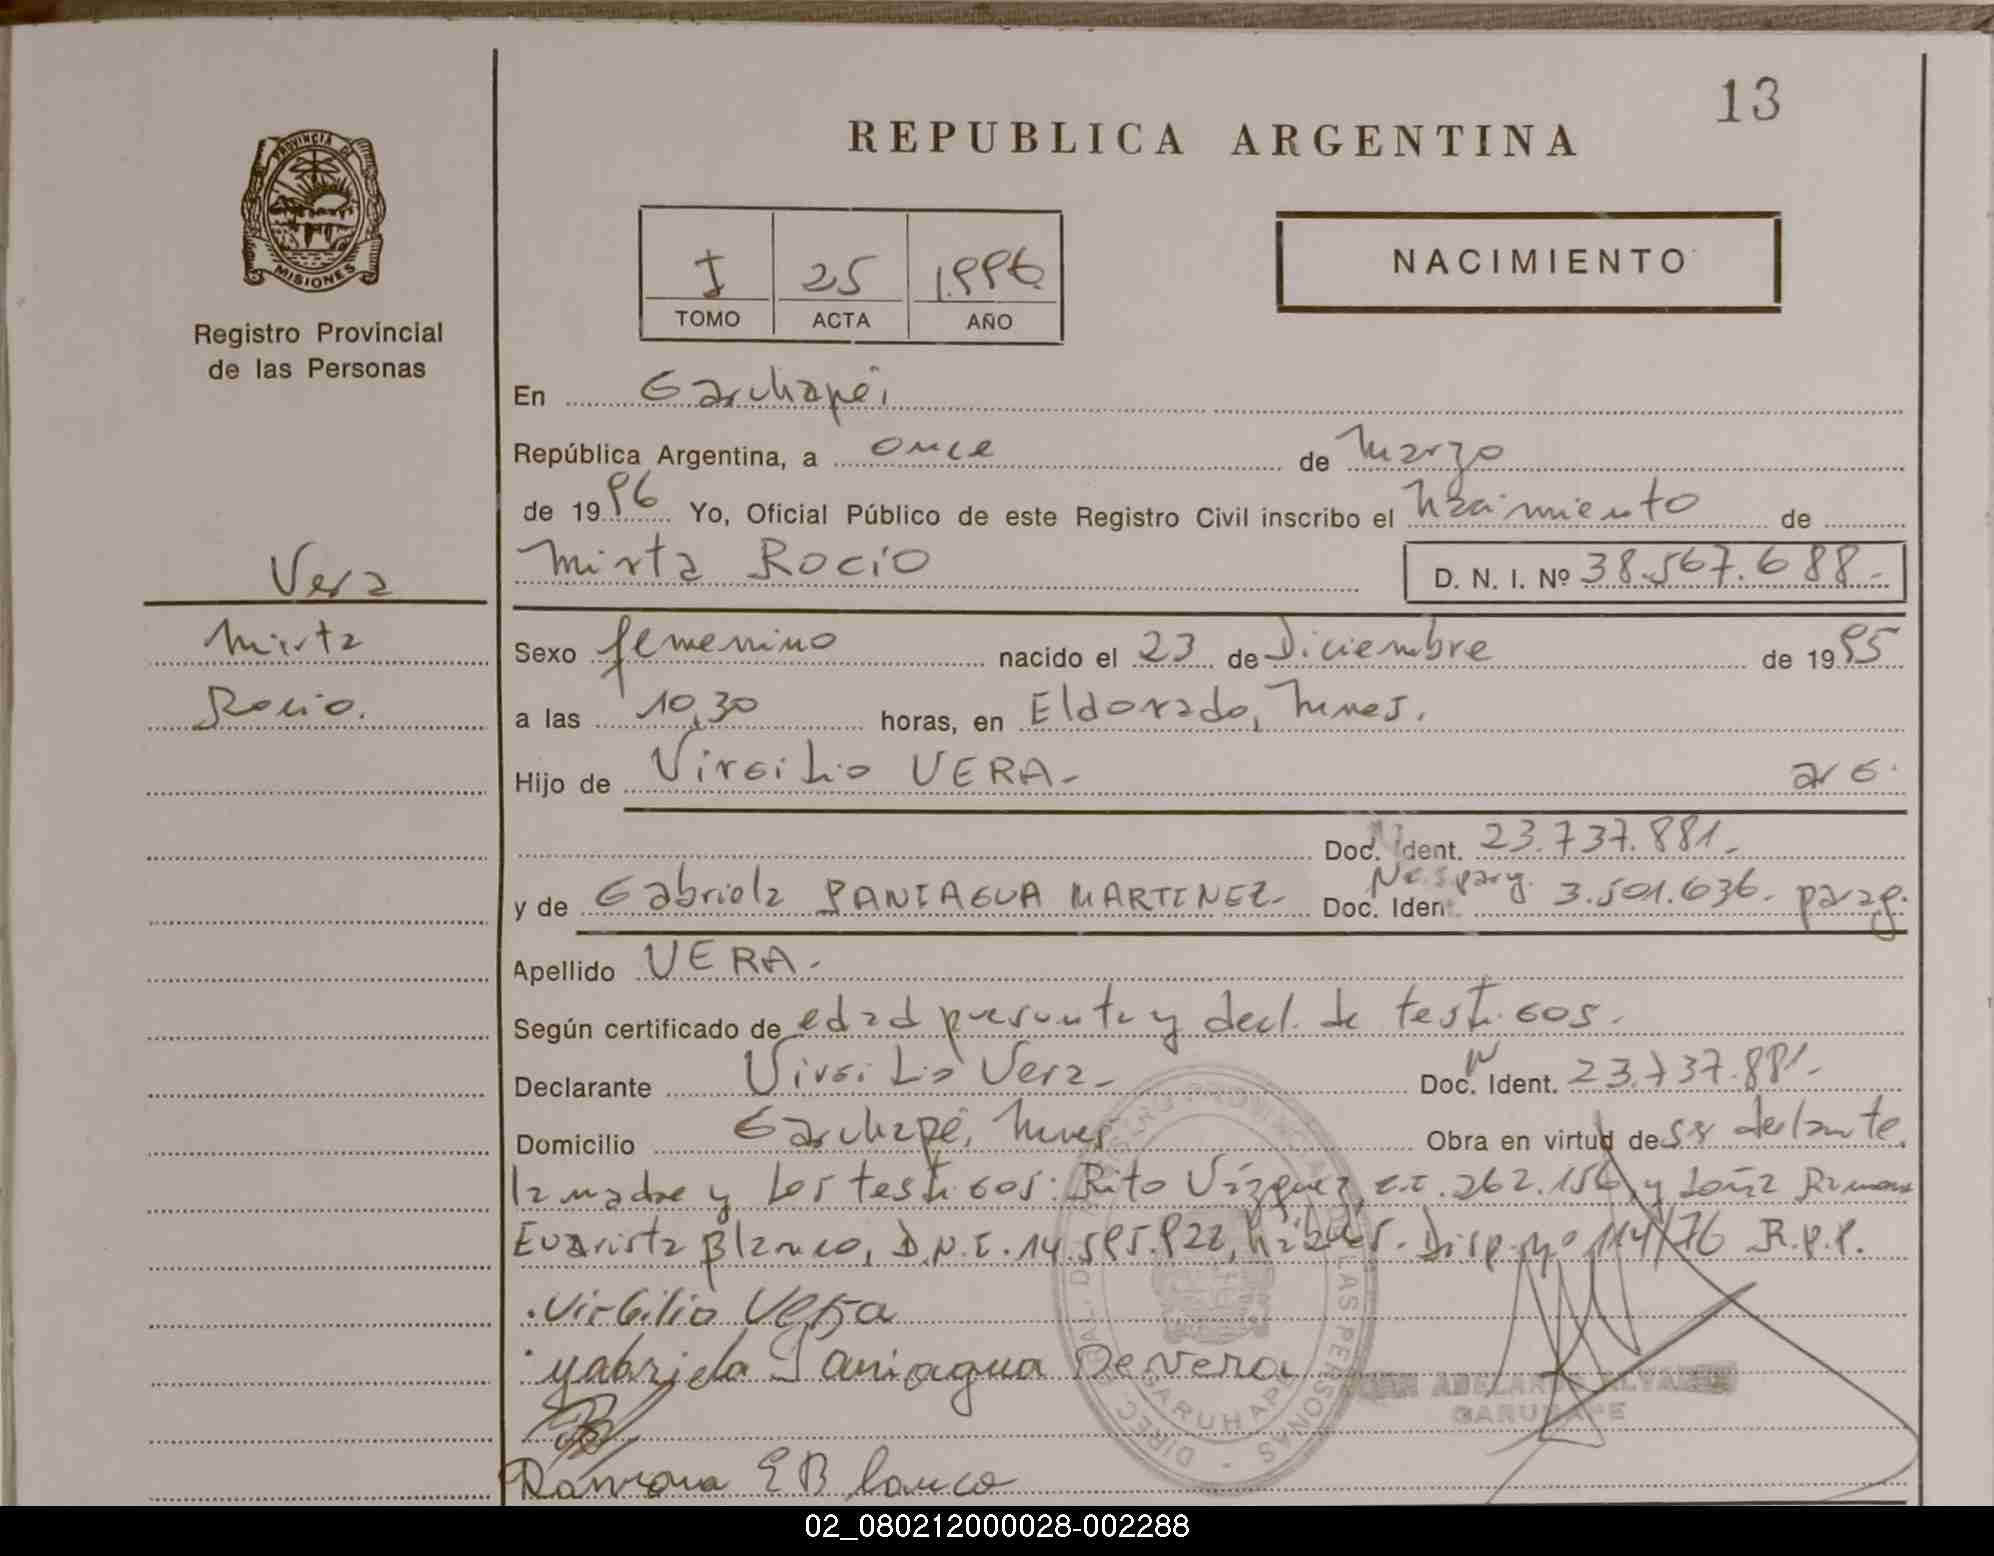 13
REPUBLICA ARGENTINA
PROVINCIA DE
MISIONES
Registro Provincial
de las Personas
I 25 1.996
TOMO ACTA AÑO
NACIMIENTO
En Garuhapé,
República Argentina, a once de marzo
de 1996 Yo, Oficial Público de este Registro Civil inscribo el Nacimiento de
Mirta Rocío D. N. I. Nº 38.567.688.-
Vera
Mirta
Rocio.
Sexo femenino nacido el 23 de Diciembre de 1995
a las 10,30 horas, en Eldorado, Mnes.
Hijo de Virgilio VERA- arg.
Doc. Ident. 23.737.881.-
y de Gabriela PANIAGUA MARTINEZ- Doc. Ident. 3.501.636. parag.
Apellido VERA.-
Según certificado de edad presunta y decl. de testigos.
Declarante Virgilio Vera- Doc. Ident. 23.737.881.-
Domicilio Garuhapé, Mnes Obra en virtud de ser declarante
la madre y los testigos: Rito Vázquez, c.i. 262.156, y doña Ramona
Evarista Blanco, D.N.I. 14.595.922, hábiles. Disp. nº 114/76 R.P.P.
Virgilio Vera
Gabriela Paniagua De Vera
JUAN ADELAR
GARUHAPE
Ramona E Blanco
DIREC. GRAL. DEL REGISTRO PROVINCIAL DE LAS PERSONAS
GARUHAPE
02_080212000028-002288